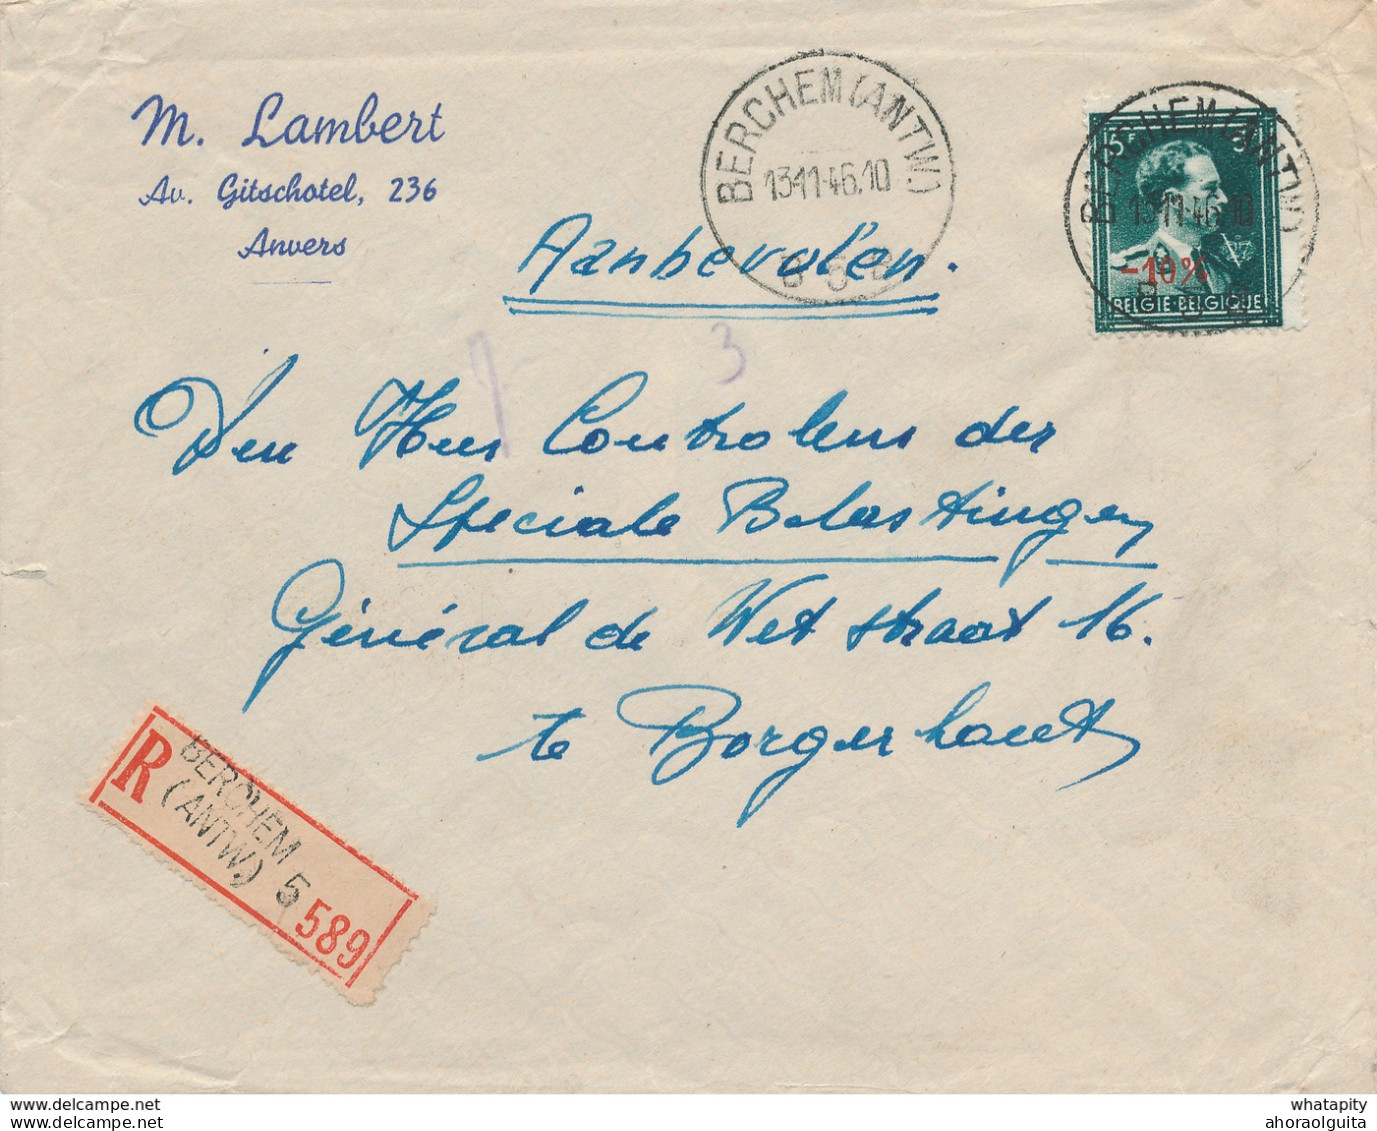 M. Lambert
Av. Gitschotel, 236
Anvers
BERCHEM (ANTW.)
13-11-46.10
B 5 B
BERCHEM (ANTW.)
13-11-46.10
B 5 B
5 5
-10%
BELGIE-BELGIQUE
Aanbevolen.
3
Den Heer Controleur der
Speciale Belastingen
Général de Wet straat 16.
te Borgerhout
R
BERCHEM 5
(ANTW.)
589
delcampe.net
whatapity
The World's Largest Marketplace for Collectors
ahoraolguita